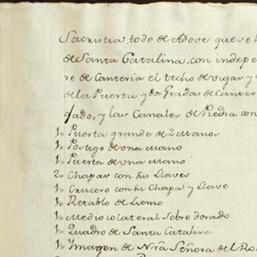 Sacristia, todo de Adove que se h
de Santa Catalina, con indepe
re de Canteria el techo de vigas y
de la Puerta y dos Gradas de Canter
lado, y las Canales de Piedra con
1„ Puerta grande de 2 manos
1„ Postigo de una mano
1„ Puerta de una mano
2„ Chapas con sus Llaves
1„ Crucero con su Chapa y Llave
1„ Retablo de Lienzo
1„ Medio colateral Sobre dorado
1„ Quadro de Santa Catalina
1„ Imagen de Nrã Señora del Ro